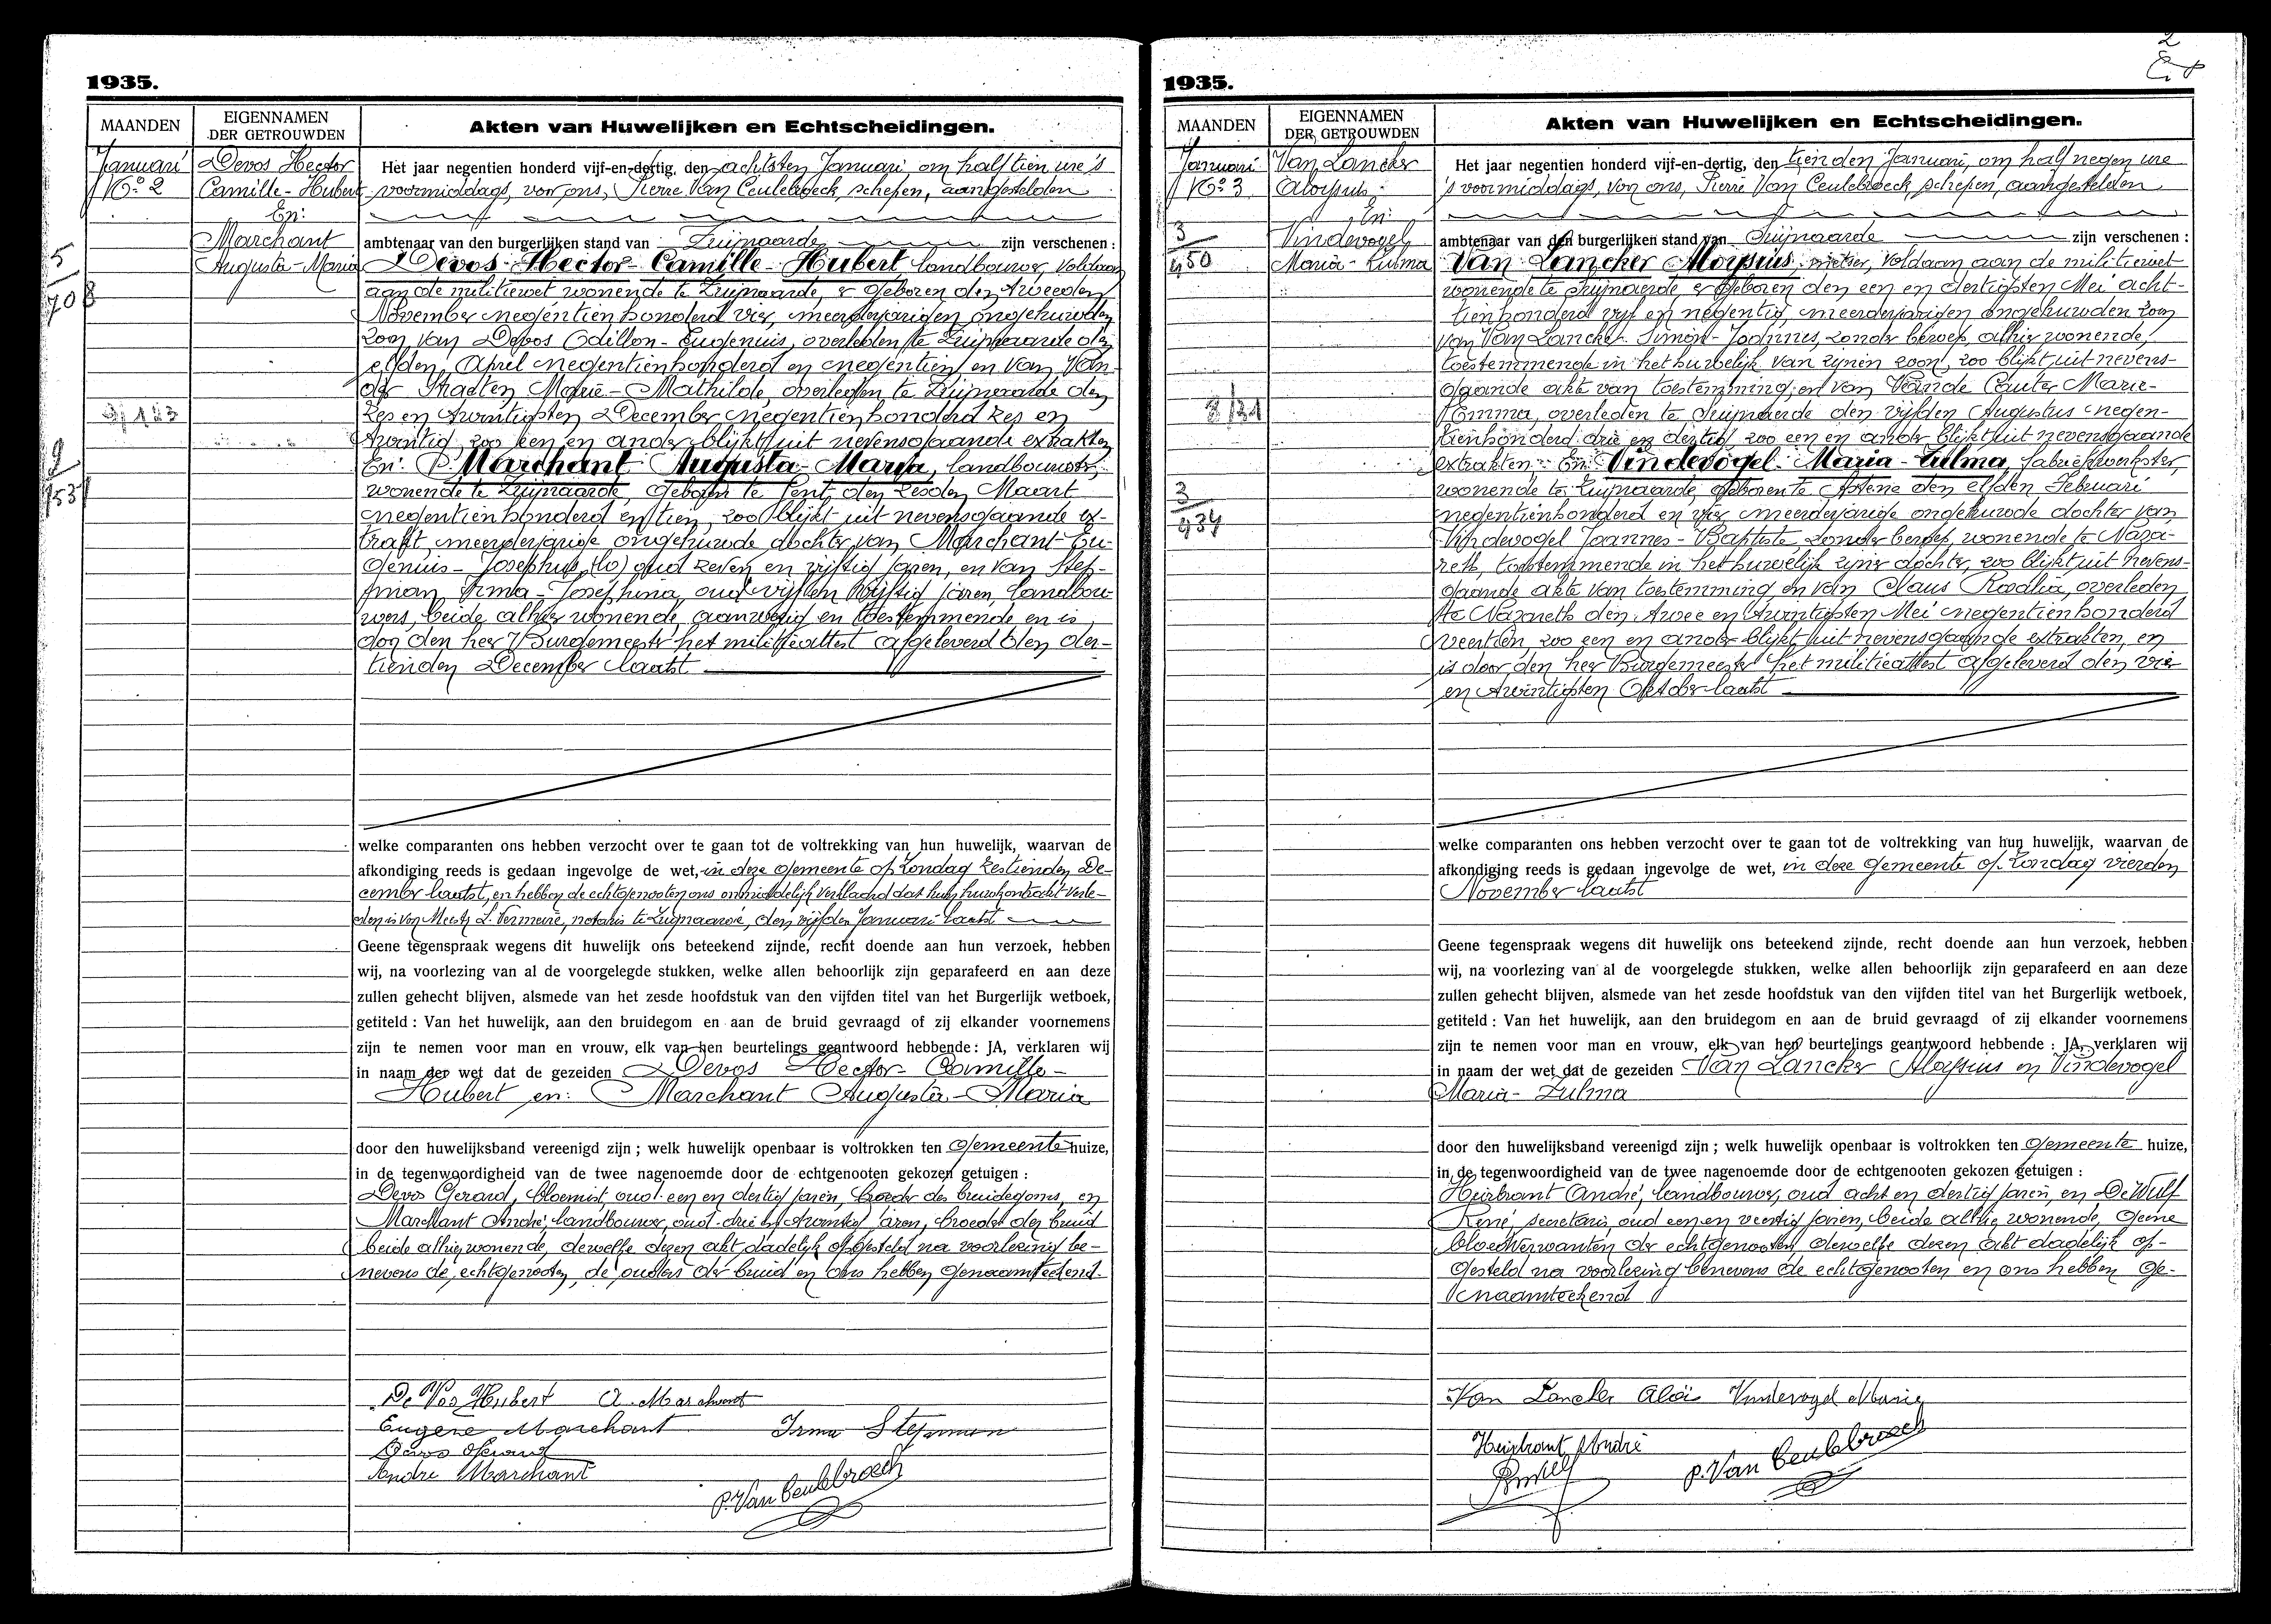 1935.
MAANDEN
EIGENNAMEN
DER GETROUWDEN
Akten van Huwelijken en Echtscheidingen.
Januari
No 2
Devos Hector
Camille-Hubert
En:
Marchant
Augusta-Maria
5
708
9
153
Het jaar negentien honderd vijf-en-dertig, den achtsten Januari, om half tien ure 's
voormiddags, vor ons, Pierre Van Ceulebroeck, schepen, aangestelden
ambtenaar van den burgerlijken stand van Zwijnaarde zijn verschenen :
Devos-Hector-Camille-Hubert landbouwer, voldaan
aan de militiewet wonende te Zwijnaarde, er geboren den tweeden
November negentienhonderd vier, meerderjarigen ongehuwden
zoon van Devos Odillon-Eugenius, overleden te Zwijnaarde den
elfden April negentienhonderd en negentien en van Van
der Straeten Marie-Mathilde, overleden te Zwijnaarde den
zes en twintigsten December negentienhonderd zes en
twintig, zoo een en ander blijkt uit nevensgaande extrakten
En: Marchant Augusta-Maria, landbouwster,
wonende te Zwijnaarde, geboren te Gent, den zesden Maart
negentienhonderd en tien, zoo blijkt uit nevensgaande ex-
trakt, meerderjarige ongehuwde dochter van Marchant Eu-
genius-Josephus, oud zeven en vijftig jaren, en van Step-
man Irma-Josephina, oud vijf en vijftig jaren, landbou-
wers, beide alhier wonende, aanwezig en toestemmende en is
door den heer Burgemeester het militieattest afgeleverd den der-
tienden December laatst
welke comparanten ons hebben verzocht over te gaan tot de voltrekking van hun huwelijk, waarvan de
afkondiging reeds is gedaan ingevolge de wet, in deze gemeente op Zondag zestienden De-
cember laatst, en hebben de echtgenooten ons onmiddelijk verklaard dat hun huwkontrakt verle-
den is van Meester L. Vermeire, notaris te Zwijnaarde, den vijfden Januari laatst
Geene tegenspraak wegens dit huwelijk ons beteekend zijnde, recht doende aan hun verzoek, hebben
wij, na voorlezing van al de voorgelegde stukken, welke allen behoorlijk zijn geparafeerd en aan deze
zullen gehecht blijven, alsmede van het zesde hoofdstuk van den vijfden titel van het Burgerlijk wetboek,
getiteld : Van het huwelijk, aan den bruidegom en aan de bruid gevraagd of zij elkander voornemens
zijn te nemen voor man en vrouw, elk van hen beurtelings geantwoord hebbende : JA, verklaren wij
in naam der wet dat de gezeiden Devos Hector-Camille-
Hubert en: Marchant Augusta-Maria
door den huwelijksband vereenigd zijn ; welk huwelijk openbaar is voltrokken ten gemeente huize,
in de tegenwoordigheid van de twee nagenoemde door de echtgenooten gekozen getuigen :
Devos Gerard, bloemist, oud een en dertig jaren, broeder des bruidegoms, en
Marchant André, landbouwer, oud drie en twintig jaren, broeder der bruid
beide alhier wonende, dewelke dezen akt dadelijk opgesteld na voorlezing be-
nevens de echtgenooten, de ouders der bruid en ons hebben genaamteekend.
De Vos Hubert A. Marchant
Eugène Marchant Irma Stepman
Devos Gerard
André Marchant
P. Van Ceulebroeck
2
1935.
MAANDEN
EIGENNAMEN
DER GETROUWDEN
Akten van Huwelijken en Echtscheidingen.
Januari
No 3
Van Lancker
Aloysius
En:
Vindevogel
Maria-Zulma
3
450
3
434
Het jaar negentien honderd vijf-en-dertig, den tienden Januari, om half negen ure
's voormiddags, von ons, Pierre Van Ceulebroeck, schepen, aangestelden
ambtenaar van den burgerlijken stand van Zwijnaarde zijn verschenen :
Van Lancker Aloysius, metser, voldaan aan de militiewet
wonende te Zwijnaarde er geboren den een en dertigsten Mei acht-
tienhonderd vijf en negentig meerderjarigen ongehuwden zoon
van Van Lancker Simon-Joannes, zonder beroep, alhier wonende,
toestemmende in het huwelijk van zijnen zoon, zoo blijkt uit nevens-
gaande akte van toestemming, en van Van de Cauter Marie-
Emma, overleden te Zwijnaarde den vijfden Augustus negen-
tienhonderd drie en dertig zoo een en ander blijkt uit nevensgaande
extrakten. En: Vindevogel-Maria-Zulma, fabriekwerkster,
wonende te Zwijnaarde, geboren te Astene den elfden Februari
negentienhonderd en vier meerderjarige ongehuwde dochter van
Vindevogel Joannes-Baptiste zonder beroep, wonende te Naza-
reth, toestemmende in het huwelijk zijner dochter, zoo blijkt uit nevens-
gaande akte van toestemming en van Claus Rosalia, overleden
te Nazareth den twee en twintigsten Mei negentienhonderd
veertien zoo een en ander blijkt uit nevensgaande extrakten, en
is door den heer Burgemeester het militieattest afgeleverd den vier
en twintigsten Oktober laatst
welke comparanten ons hebben verzocht over te gaan tot de voltrekking van hun huwelijk, waarvan de
afkondiging reeds is gedaan ingevolge de wet, in deze gemeente op Zondag vierden
November laatst
Geene tegenspraak wegens dit huwelijk ons beteekend zijnde, recht doende aan hun verzoek, hebben
wij, na voorlezing van al de voorgelegde stukken, welke allen behoorlijk zijn geparafeerd en aan deze
zullen gehecht blijven, alsmede van het zesde hoofdstuk van den vijfden titel van het Burgerlijk wetboek,
getiteld : Van het huwelijk, aan den bruidegom en aan de bruid gevraagd of zij elkander voornemens
zijn te nemen voor man en vrouw, elk van hen beurtelings geantwoord hebbende : JA, verklaren wij
in naam der wet dat de gezeiden Van Lancker Aloysius en Vindevogel
Maria-Zulma
door den huwelijksband vereenigd zijn ; welk huwelijk openbaar is voltrokken ten gemeente huize,
in de tegenwoordigheid van de twee nagenoemde door de echtgenooten gekozen getuigen :
Heirbrant André, landbouwer, oud acht en dertig jaren, en De Wulf
René, secretaris, oud een en veertig jaren, beide alhier wonende, geene
bloedverwanten der echtgenooten, dewelke dezen akt dadelijk op-
gesteld na voorlezing benevens de echtgenooten en ons hebben ge-
naamteekend
Van Lancker Aloïs Vindevogel Marie
Heirbrant André
P. Van Ceulebroeck